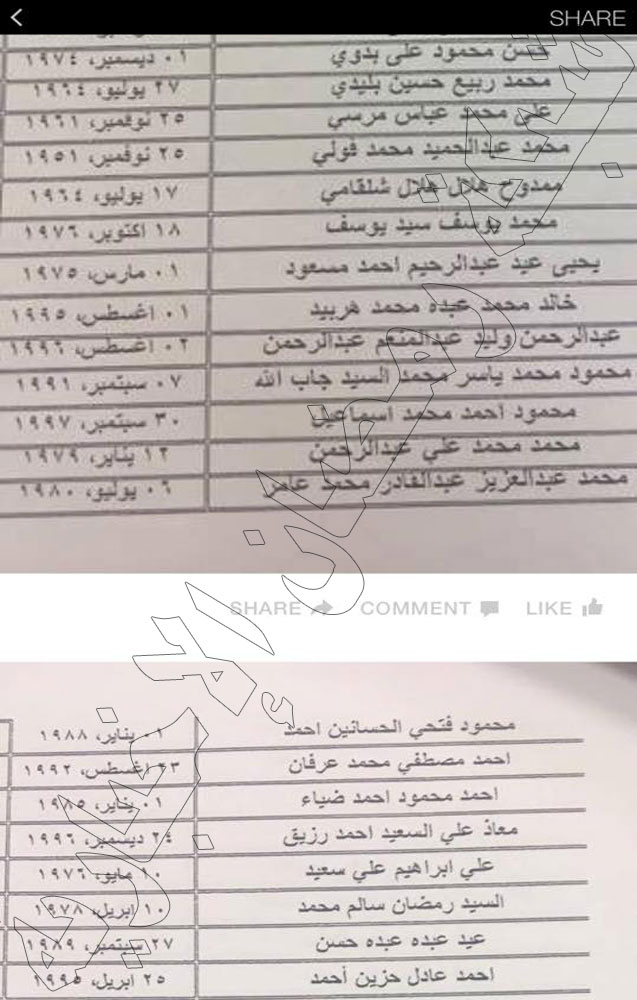 SHARE
حسن محمود على بدوي ٠١ ديسمبر، ١٩٧٤
محمد ربيع حسين بليدي ٢٧ يوليو، ١٩٦٤
على محمد عباس مرسي ٢٥ نوفمبر، ١٩٦١
محمد عبدالحميد محمد فولي ٢٥ نوفمبر، ١٩٥١
ممدوح هلال هلال شلقامي ١٧ يوليو، ١٩٦٤
محمد يوسف سيد يوسف ١٨ اكتوبر، ١٩٧٦
يحيى عيد عبدالرحيم احمد مسعود ٠١ مارس، ١٩٧٥
خالد محمد عبده محمد هربيد ٠١ اغسطس، ١٩٩٥
عبدالرحمن وليد عبدالمنعم عبدالرحمن ٠٢ اغسطس، ١٩٩٦
محمود محمد ياسر محمد السيد جاب الله ٠٧ سبتمبر، ١٩٩١
محمود احمد محمد اسماعيل ٣٠ سبتمبر، ١٩٩٧
محمد محمد علي عبدالرحمن ١٢ يناير، ١٩٧٩
محمد عبدالعزيز عبدالقادر محمد عامر ٠٦ يوليو، ١٩٨٠
SHARE COMMENT LIKE
محمود فتحي الحسانين احمد ٠١ يناير، ١٩٨٨
احمد مصطفي محمد عرفان ٢٣ اغسطس، ١٩٩٢
احمد محمود احمد ضياء ٠١ يناير، ١٩٨٥
معاذ علي السعيد احمد رزيق ٢٤ ديسمبر، ١٩٩٦
علي ابراهيم علي سعيد ١٠ مايو، ١٩٧٦
السيد رمضان سالم محمد ١٠ ابريل، ١٩٧٨
عيد عبده عبده حسن ٢٧ سبتمبر، ١٩٨٩
احمد عادل حزين أحمد ٢٥ ابريل، ١٩٩٥